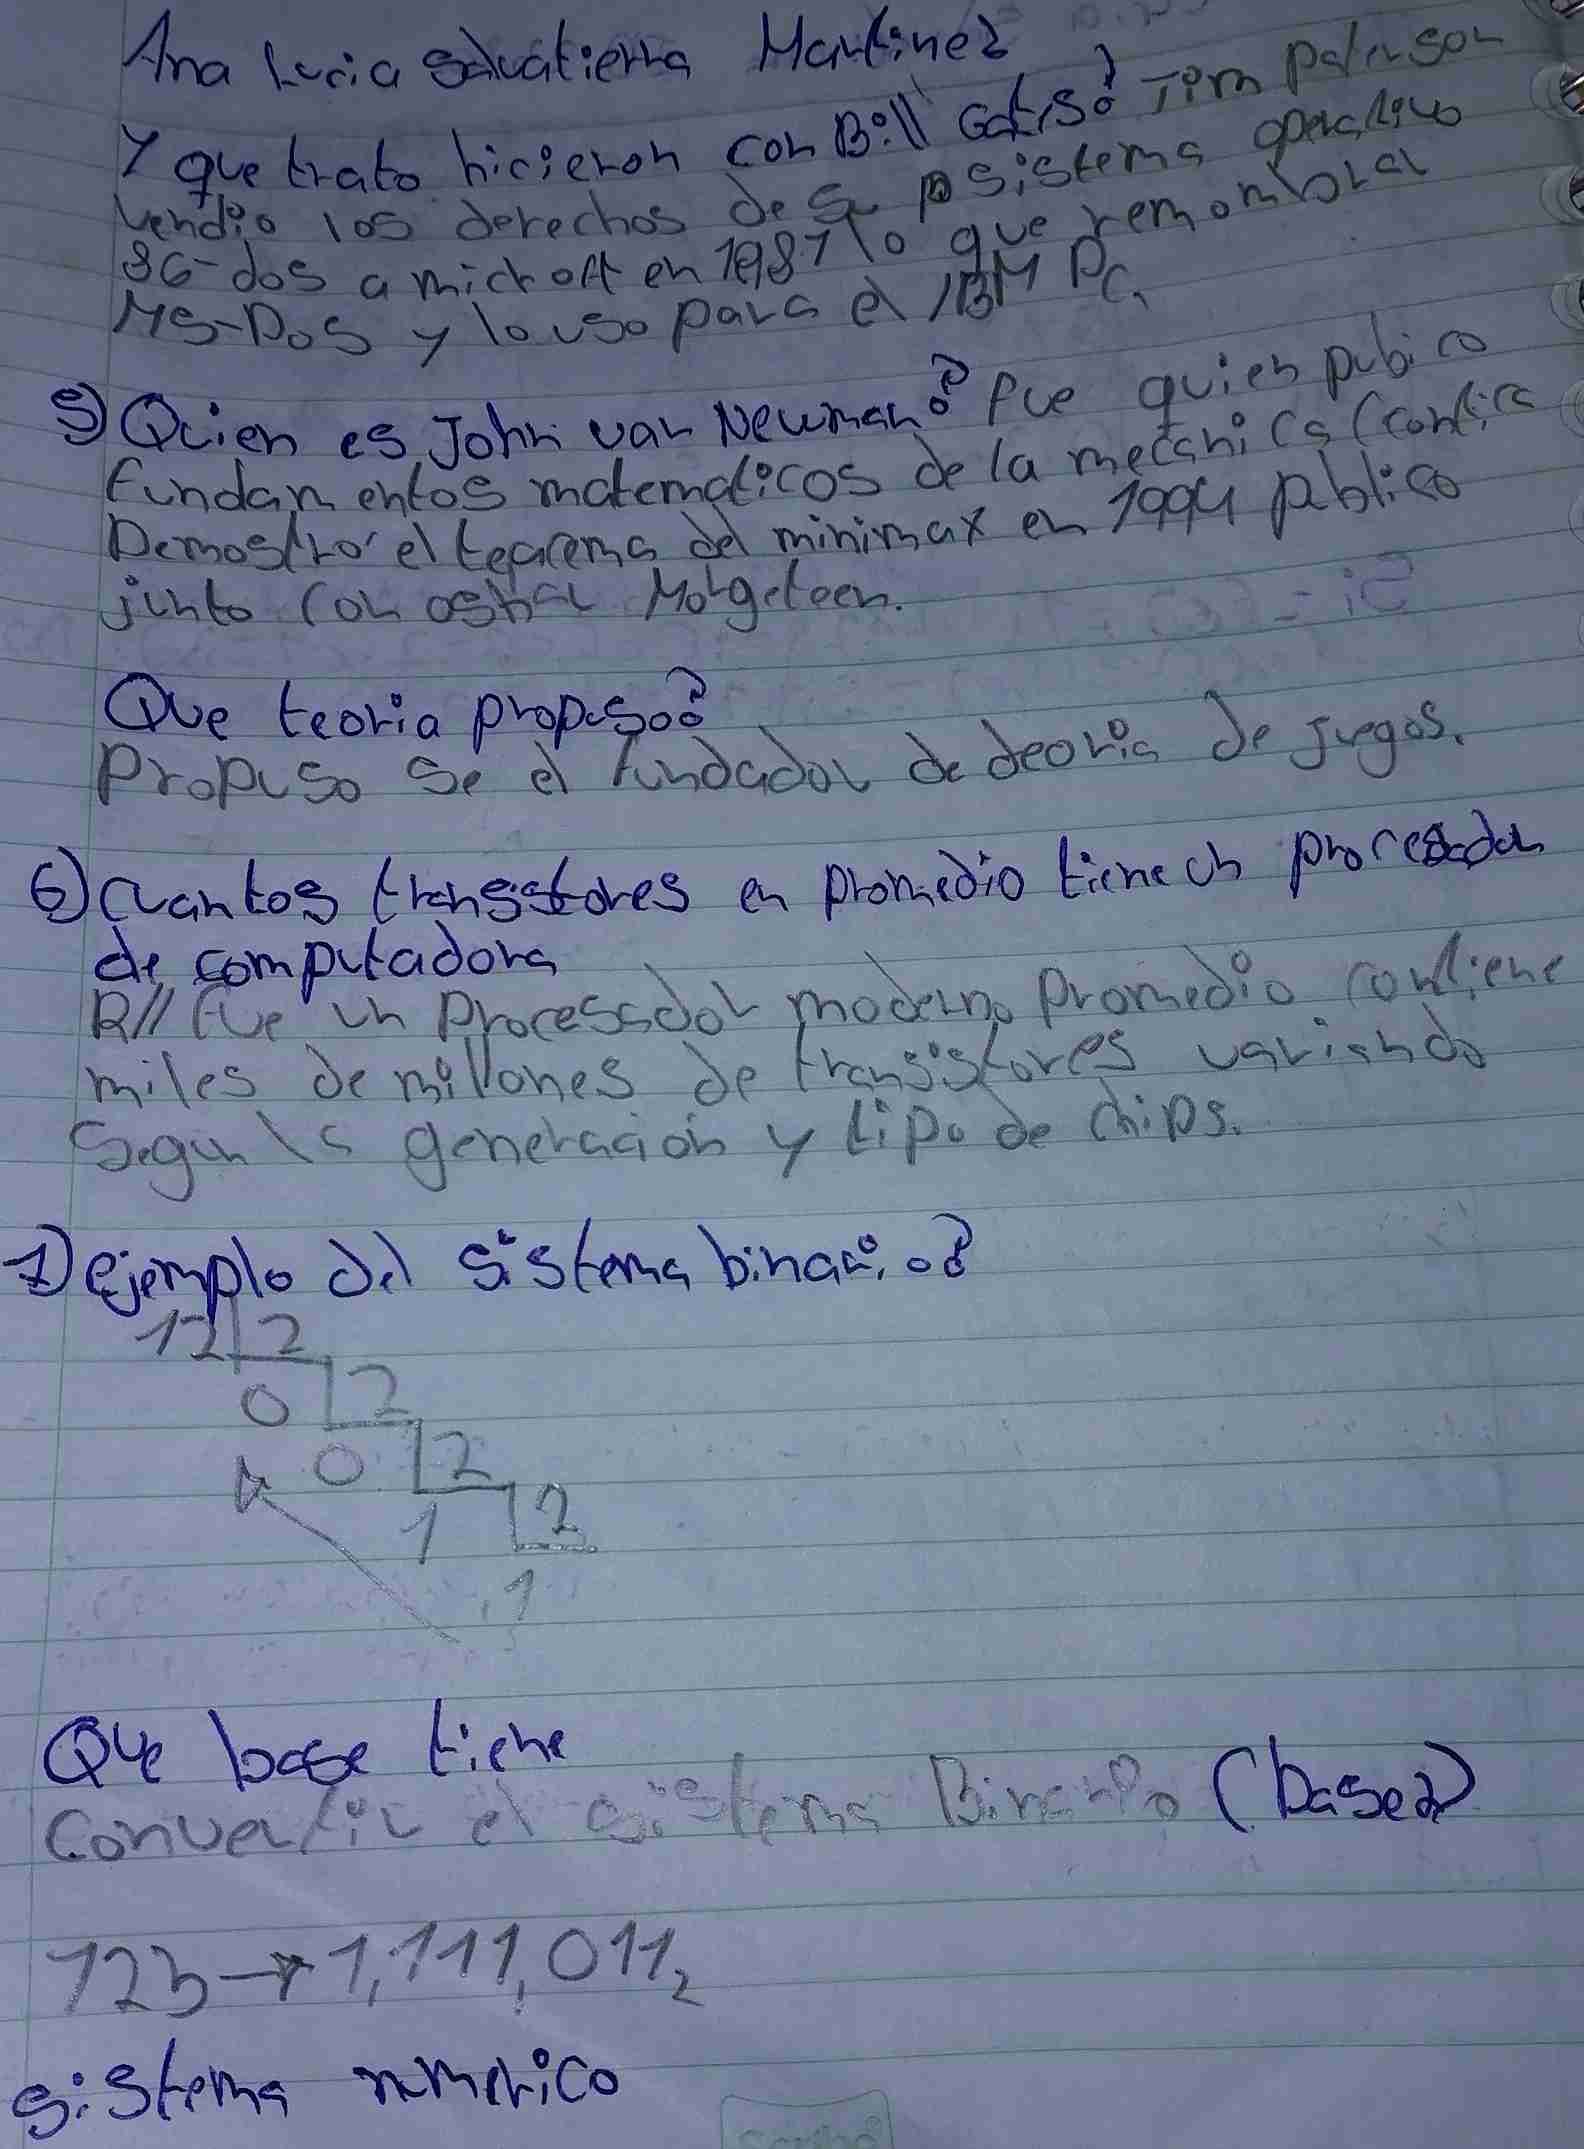 Ana Lucia Salvatierra Martinez
Y que trato hicieron con Bill Gates? Tim Paterson
vendio los derechos de su sistema operativo
86-dos a microft en 1981 lo que remombrar
MS-DOS y lo uso para el IBM PC,
5) Quien es John van Newman? Fue quien pubico
fundamentos matematicos de la mecanica
Demostro el tearema del minimax en 1944 publico
junto con oskar Morgeteen.
Que teoria propuso?
Propuso se el fundador de deoria de juegos.
6) Cuantos transistores en promedio tiene un procesador
de computadora
R// Fue un Procesador moderno promedio contiene
miles de millones de transistores variando
Segun la generacion y tipo de chips.
7) Ejemplo del sistema binario?
12 2
0 2
0 2
1 2
1
Que base tiene
Convertir el sistema Binario (base2)
123 → 1,111,011₂
Sistema numerico
Scribe